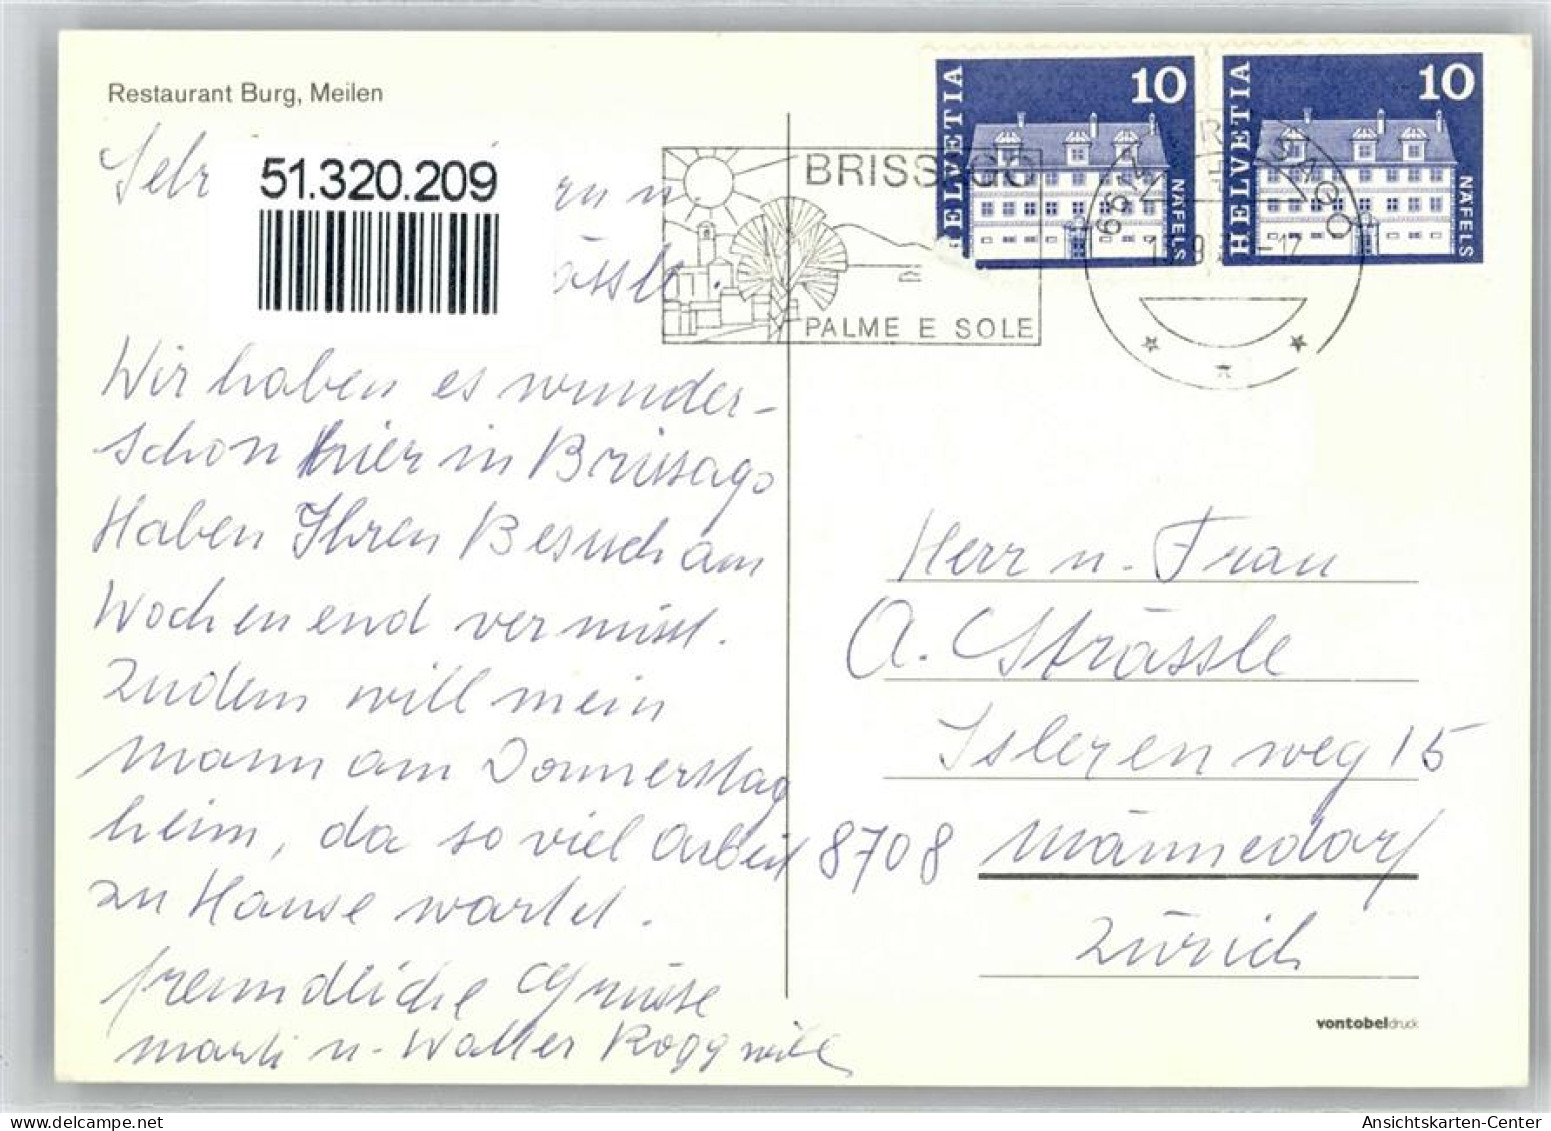 Restaurant Burg, Meilen
51.320.209
Wir haben es wunder-
schon hier in Brissago
Haben Ihren Besuch am
Wochenend vermisst.
Zudem will mein
Mann am Donnerstag
heim, da so viel Arbeit
zu Hause wartet.
freundliche Grüsse
Marti u. Walter Roggwill
BRISSAGO
PALME E SOLE
HELVETIA 10
NÄFELS
HELVETIA 10
NÄFELS
Herr u. Frau
A. Strässle
Isleren weg 15
8708 Männedorf
Zürich
vontobeldruck
Ansichtskarten-Center